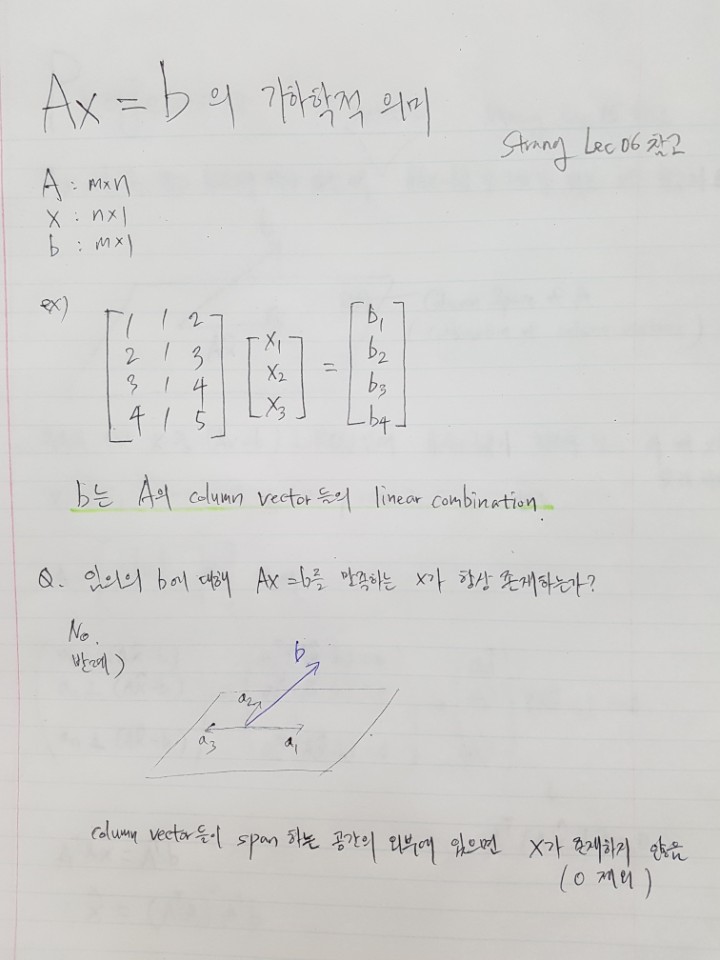 Ax = b 의 기하학적 의미
Strang Lec 06 참고
A : m×n
x : n×1
b : m×1
ex)
1 1 2 x₁ b₁
2 1 3 x₂ = b₂
3 1 4 x₃ b₃
4 1 5 b₄
b는 A의 column vector들의 linear combination.
Q. 임의의 b에 대해 Ax = b를 만족하는 x가 항상 존재하는가?
No.
반례)
b
a₂
a₃ a₁
column vector들이 span 하는 공간의 외부에 있으면 x가 존재하지 않음
(0 제외)